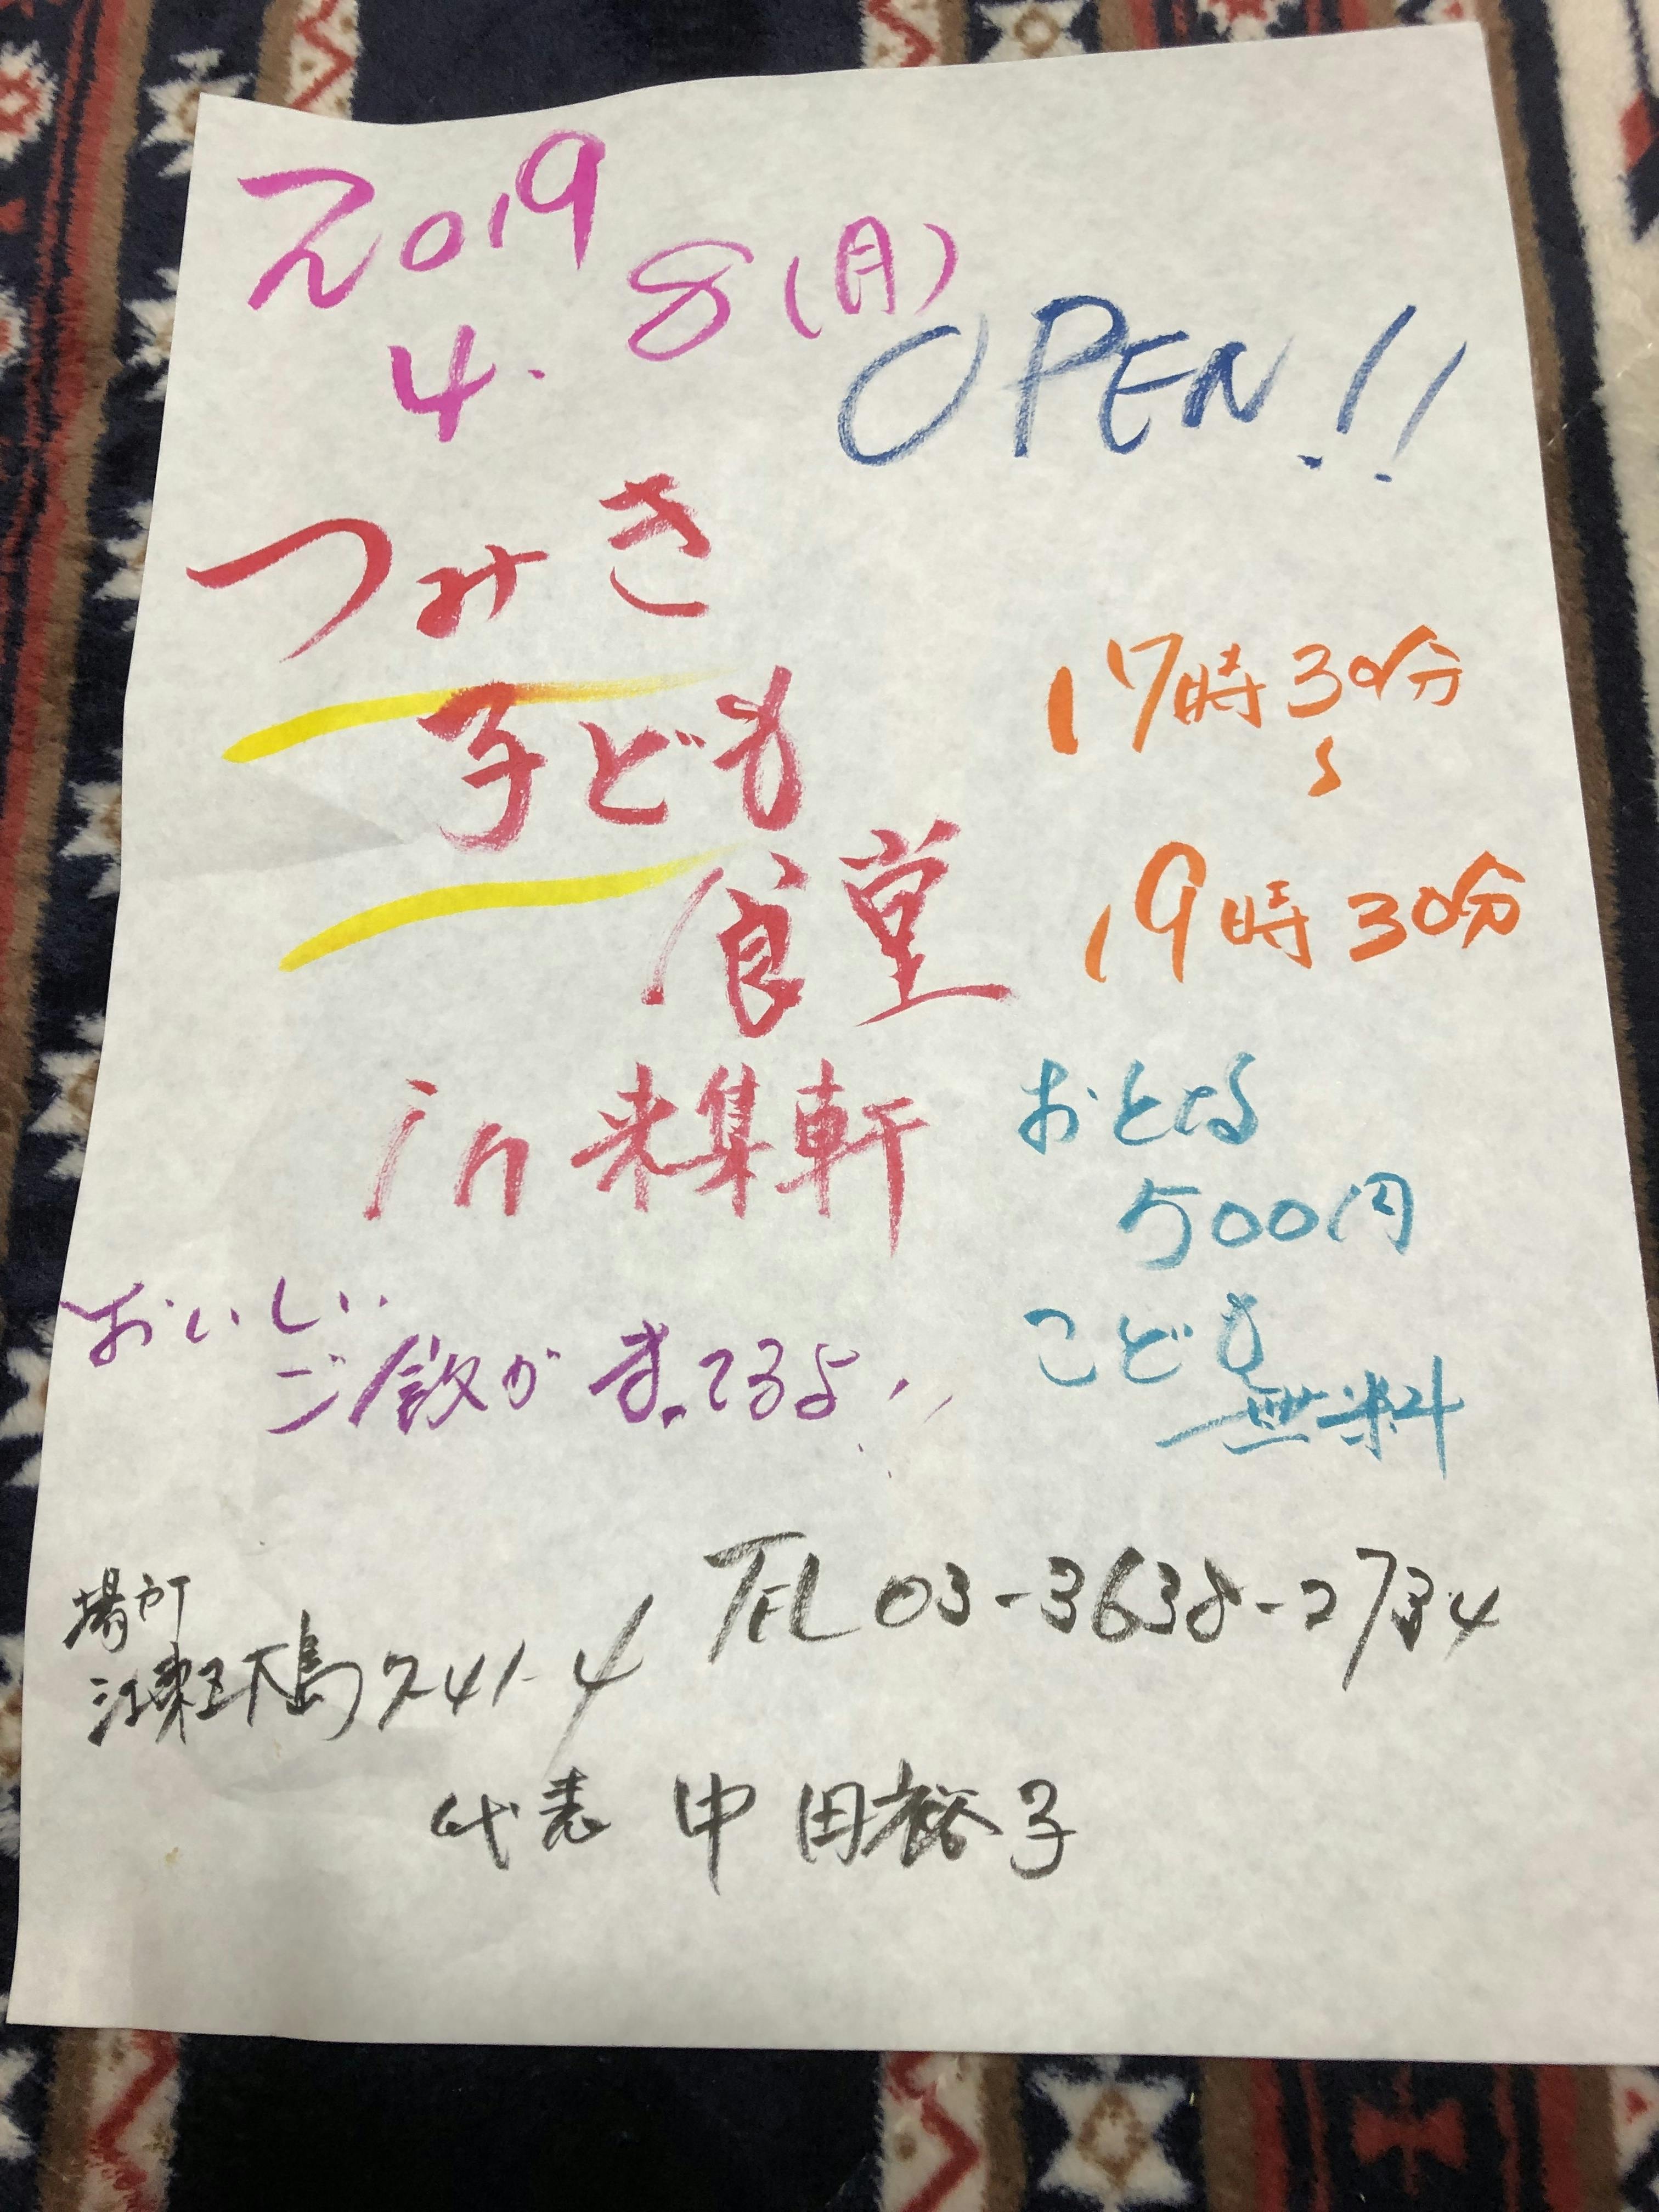 2019
4.8(月)
OPEN!!
つみき
子ども
食堂
in 来集軒
17時30分
〜
19時30分
おとな
500円
こども
無料
おいしい
ご飯がまってるよ!!
TEL 03-3638-2734
場所
江東区大島7-41-4
代表 中田裕子